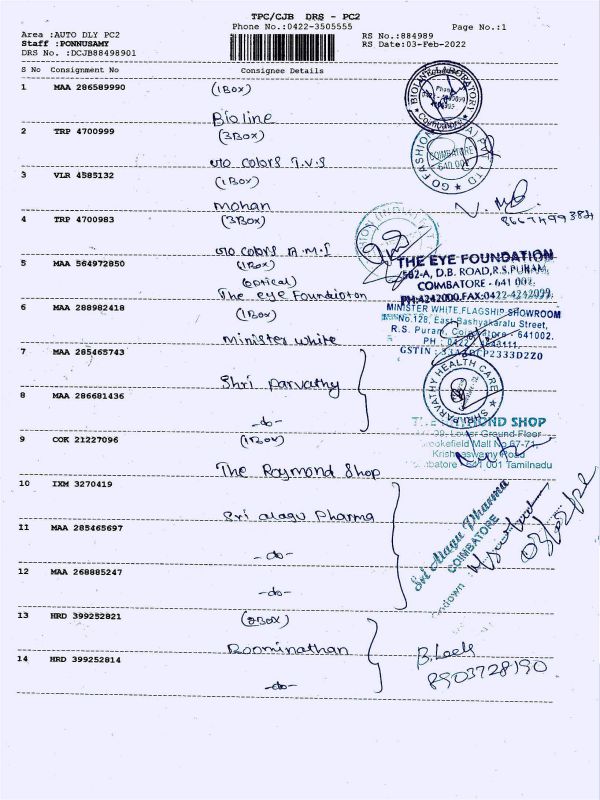 TPC/CJB DRS - PC2
Phone No.:0422-3505555
Page No.:1
Area :AUTO DLY PC2
Staff :PONNUSAMY
DRS No. :DCJB88498901
RS No.:884989
RS Date:03-Feb-2022
S No Consignment No Consignee Details
1 MAA 286589990 (1Box)
Bioline
2 TRP 4700999 (3Box)
colors T.V.S
3 VLR 4585132 (1Box)
mohan
4 TRP 4700983 (3Box)
colors
5 MAA 564972850 (1Box)
(optical)
The eye Foundation
6 MAA 288982418 (1Box)
Minister white
7 MAA 285465743
Shri Parvathy
8 MAA 286681436
-do-
9 COK 21227096 (1Box)
The Raymond Shop
10 IXM 3270419
Sri alagu Pharma
11 MAA 285465697
-do-
12 MAA 268885247
-do-
13 HRD 399252821
Boominathan
14 HRD 399252814
-do-
Coimbatore
GO FASHION
COIMBATORE
THE EYE FOUNDATION
582-A, D.B. ROAD,R.S.PURAM,
COIMBATORE - 641 002.
PH:4242000,FAX:0422-4242099
MINISTER WHITE,FLAGSHIP SHOWROOM
No.128, East Bashyakaralu Street,
R.S. Puram, Coimbatore - 641002.
GSTIN :
SHRI PARVATHY HEALTH CARE
SHOP
Lower Ground Floor
Brookefield Mall No 67-71,
Krishnaswamy Road
Coimbatore - 641 001 Tamilnadu
Sri Alagu Pharma
COIMBATORE
8903728190